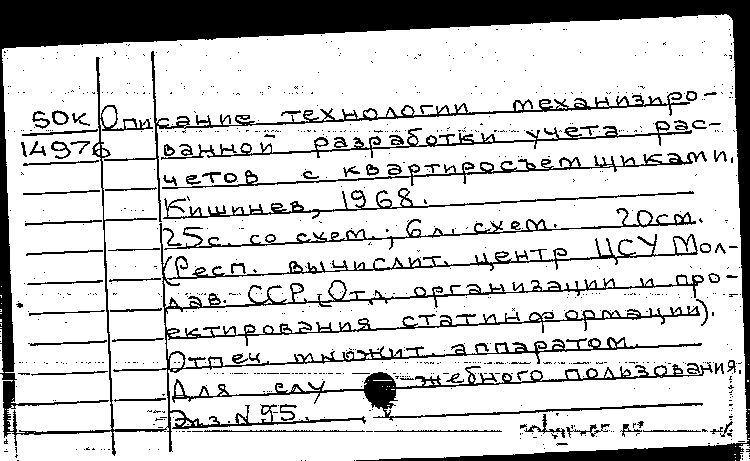 50к Описание технологии механизиро-
14976 ванной разработки учета рас-
четов с квартиросъемщиками.
Кишинев, 1968.
25с. со схем.; 6 л. схем. 20см.
(Респ. вычислит. центр ЦСУ Мол-
дав. ССР. Отд. организации и про-
ектирования статинформации).
Отпеч. множит. аппаратом.
Для служебного пользования.
Экз. N 95.